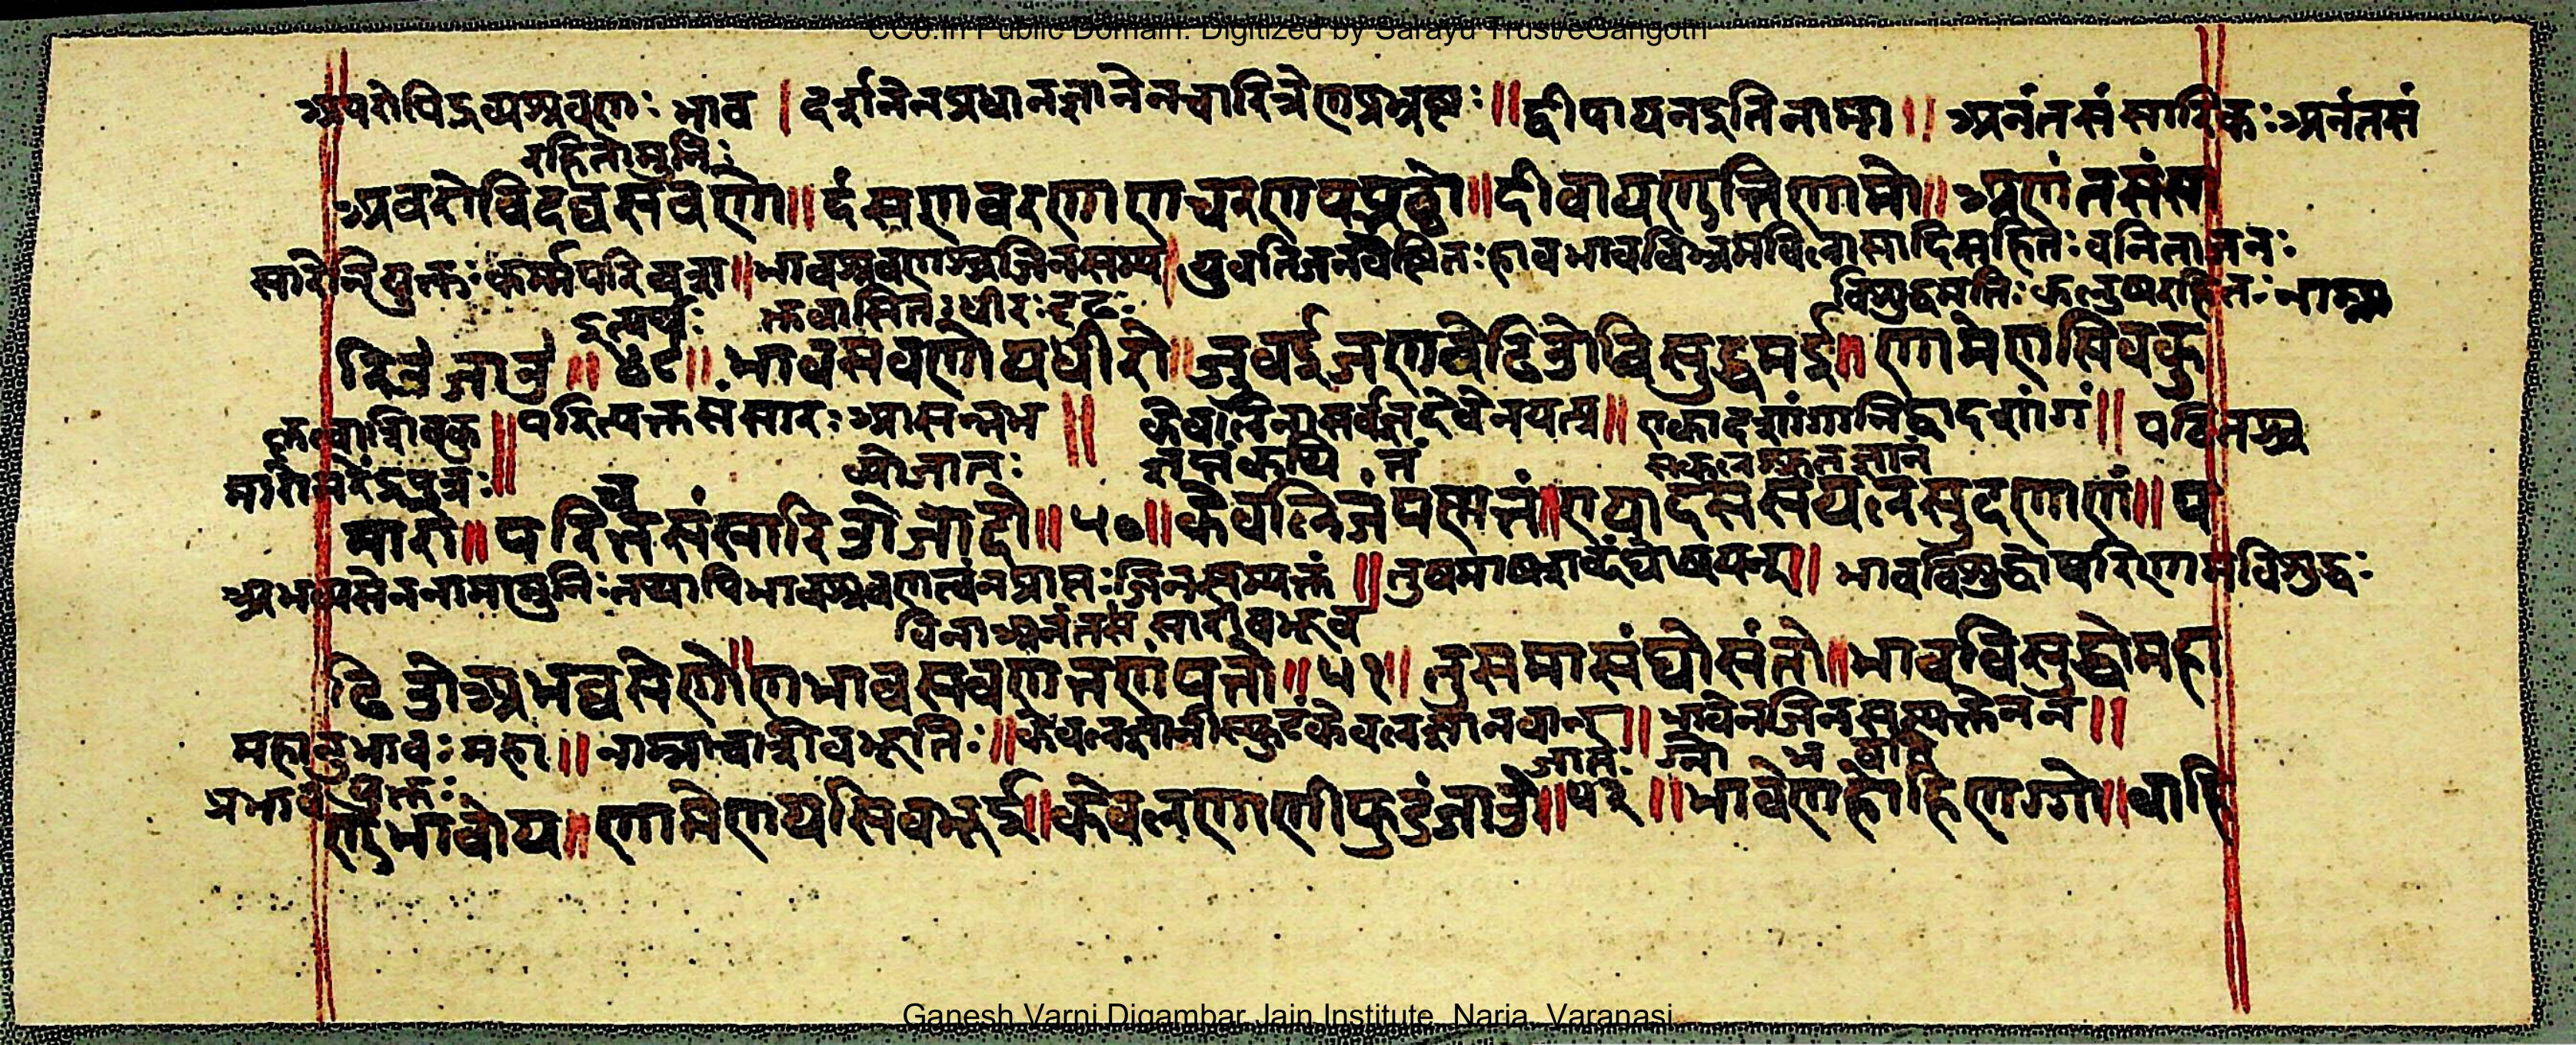 CC0.In Public Domain. Digitized by Sarayu Trust/eGangotri
अपरोपिद्रव्यश्रवणः भाव । दर्शनेनप्रधानज्ञानेनचारित्रेणप्रभ्रष्टः ॥ द्वीपायनइतिनामा ॥ अनंतसंसारिकः अनंतसं
रहितोमुनिः
अवरोविदव्वसवणो ॥ दंसणवरणाणचरणपप्भट्ठो ॥ दीवायणुत्तिणामो ॥ अणंतसंसा
सारेनियुक्तः कर्म्मपरिवशा ॥ भावश्रवणश्चजिनसम्य । युवतिजनवेष्टितः हावभावविभ्रमविलासादिसहितः वनिताजनः
इत्यर्थः क्तवासितः धीरः दृढः विशुद्धमतिः कलुषरहितः नाम्ना
रिउजाउ ॥ ४९ ॥ भावसवणोयधीरो ॥ जुवईजणवेढिउविसुद्धमई ॥ णामेणसिवकु
कृत्वाशिवकु ॥ परित्यक्तसंसारः आसन्नभ ॥ केवलिनासर्वज्ञदेवेनयत्र ॥ एकादशांगानिद्वादशांगं ॥ पठितश्च
मारोनरेंद्रपुत्रः ॥ व्योजातः सकलश्रुतज्ञानं
मारो ॥ परित्तसंसारिउजादो ॥ ५० ॥ केवलिजिणपणत्तं ॥ एयादससयलसुदणाणं ॥ प
अभव्यसेननामामुनिः तथापिभावश्रवणत्वंनप्राप्तः जिनसम्यक्तं ॥ तुषमाषशब्दंघोषयन् ॥ भावविशुद्धोपरिणामविशुद्धः
विनाअनंतसंसारीबभूव
ढिउअभव्वसेणो ॥ णभावसवणत्तणंपत्तो ॥ ५१ ॥ तुसमासंघोसंतो ॥ भावविसुद्धोमहा
महानुभावः महा ॥ नाम्नाचशिवभूतिः ॥ केवलज्ञानीस्फुटंकेवलज्ञानवान् ॥ भावेनजिनसम्यक्तेनन ॥
प्रभावयुक्तः जातः ग्नो भवति
णुभावोय ॥ णामेणयसिवभूई ॥ केवलणाणीफुडंजाउ ॥ ५२ ॥ भावेणहोहिणग्गो ॥ वाहि
Ganesh Varni Digambar Jain Institute, Naria, Varanasi